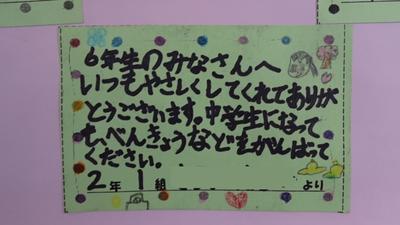 6年生のみなさんへ
いつもやさしくしてくれてありが
とうございます。中学生になって
もべんきょうなどをがんばって
ください。
2年 1組 より